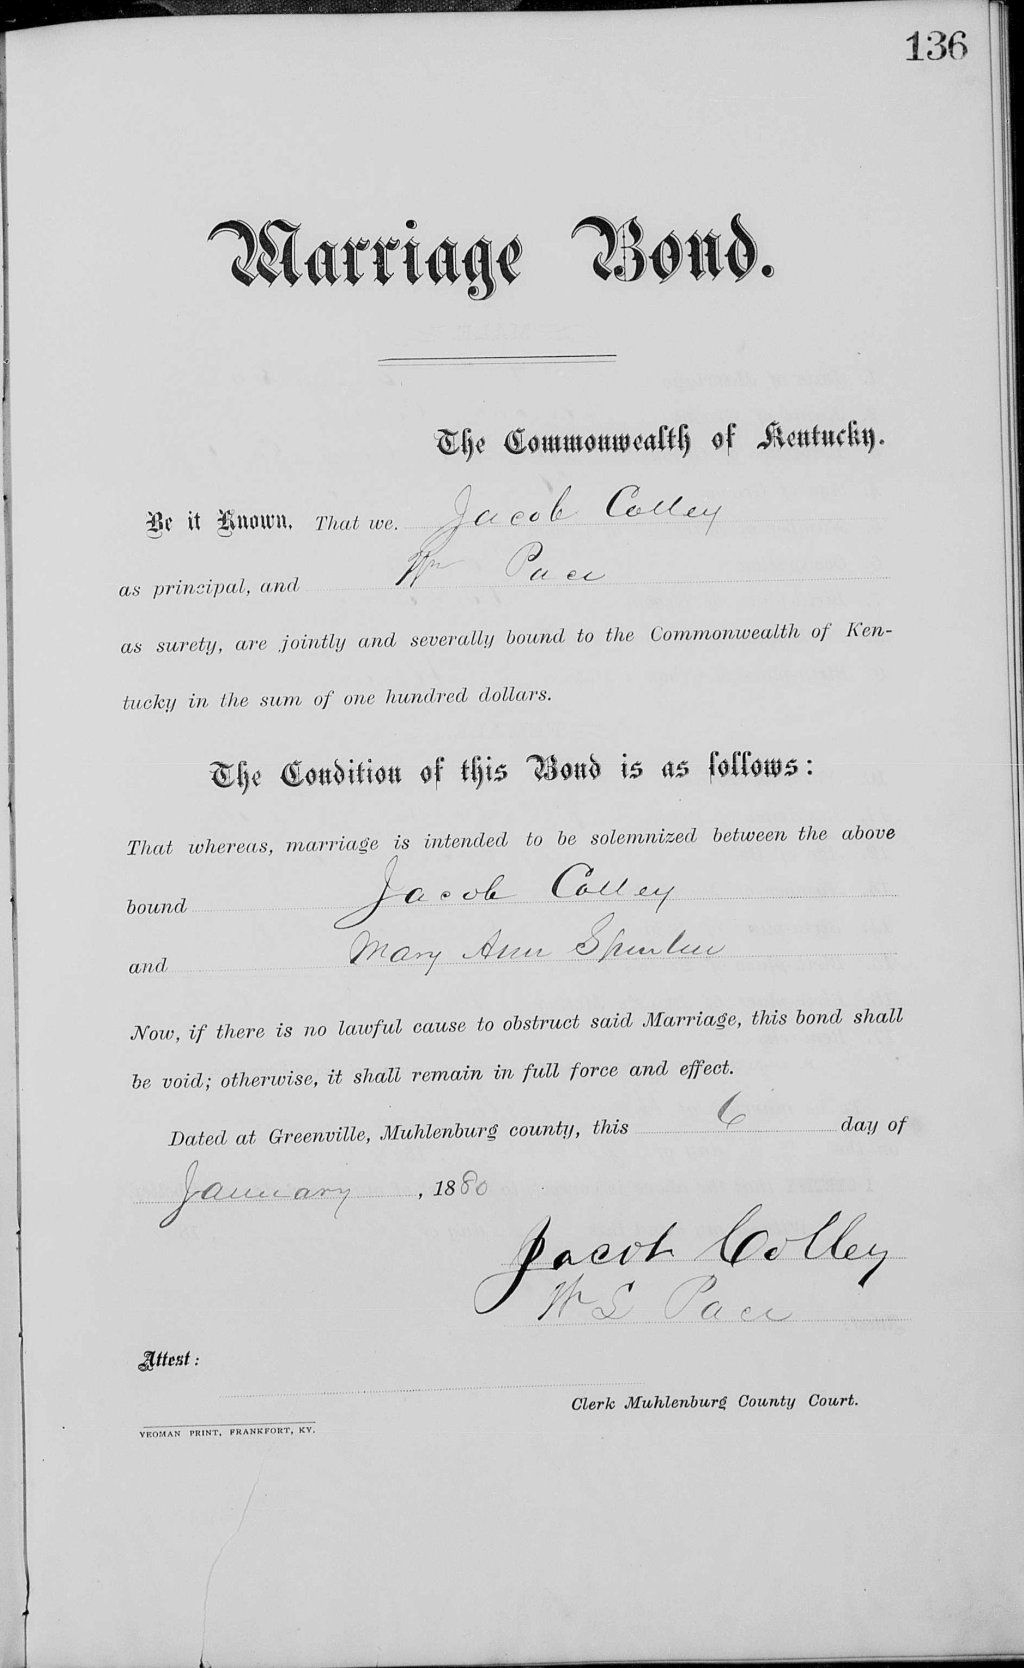 136
Marriage Bond.
The Commonwealth of Kentucky.
Be it Known, That we, Jacob Colley
as principal, and Wm Pace
as surety, are jointly and severally bound to the Commonwealth of Ken-
tucky in the sum of one hundred dollars.
The Condition of this Bond is as follows:
That whereas, marriage is intended to be solemnized between the above
bound Jacob Colley
and Mary Ann
Now, if there is no lawful cause to obstruct said Marriage, this bond shall
be void; otherwise, it shall remain in full force and effect.
Dated at Greenville, Muhlenburg county, this 6 day of
January, 1880
Jacob Colley
Wm L Pace
Attest:
Clerk Muhlenburg County Court.
YEOMAN PRINT, FRANKFORT, KY.